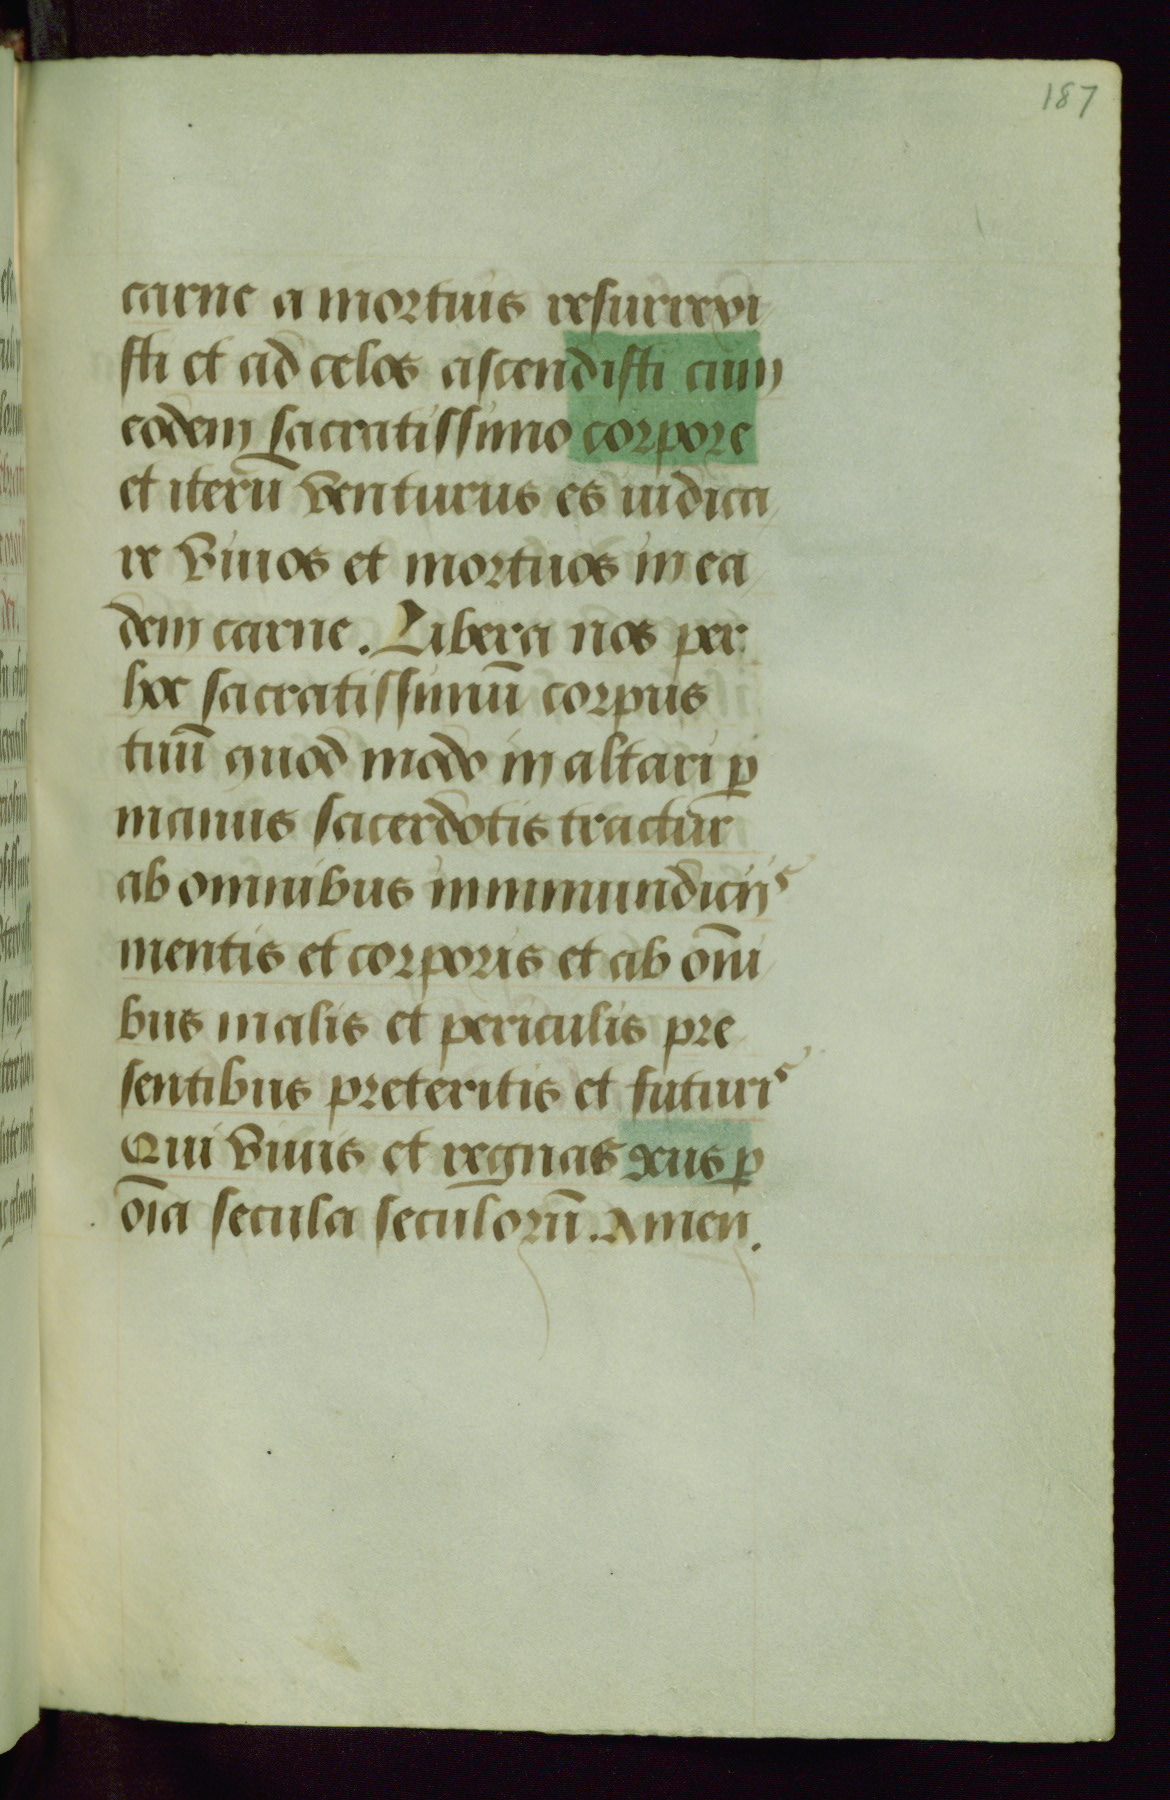 187
carne a mortuis resurrexi
sti et ad celos ascendisti cum
eodem sacratissimo corpore
et iterū venturus es iudica
re vivos et mortuos in ea
dem carne. Libera nos per
hoc sacratissimū corpus
tuū quod modo in altari ꝑ
manus sacerdotis tractur̄
ab omnibus inmmundiciis
mentis et corporis et ab om̄i
bus malis et periculis pre
sentibus preteritis et futuris
Qui vivis et regnas ꝑ
oīa secula seculorū. Amen.